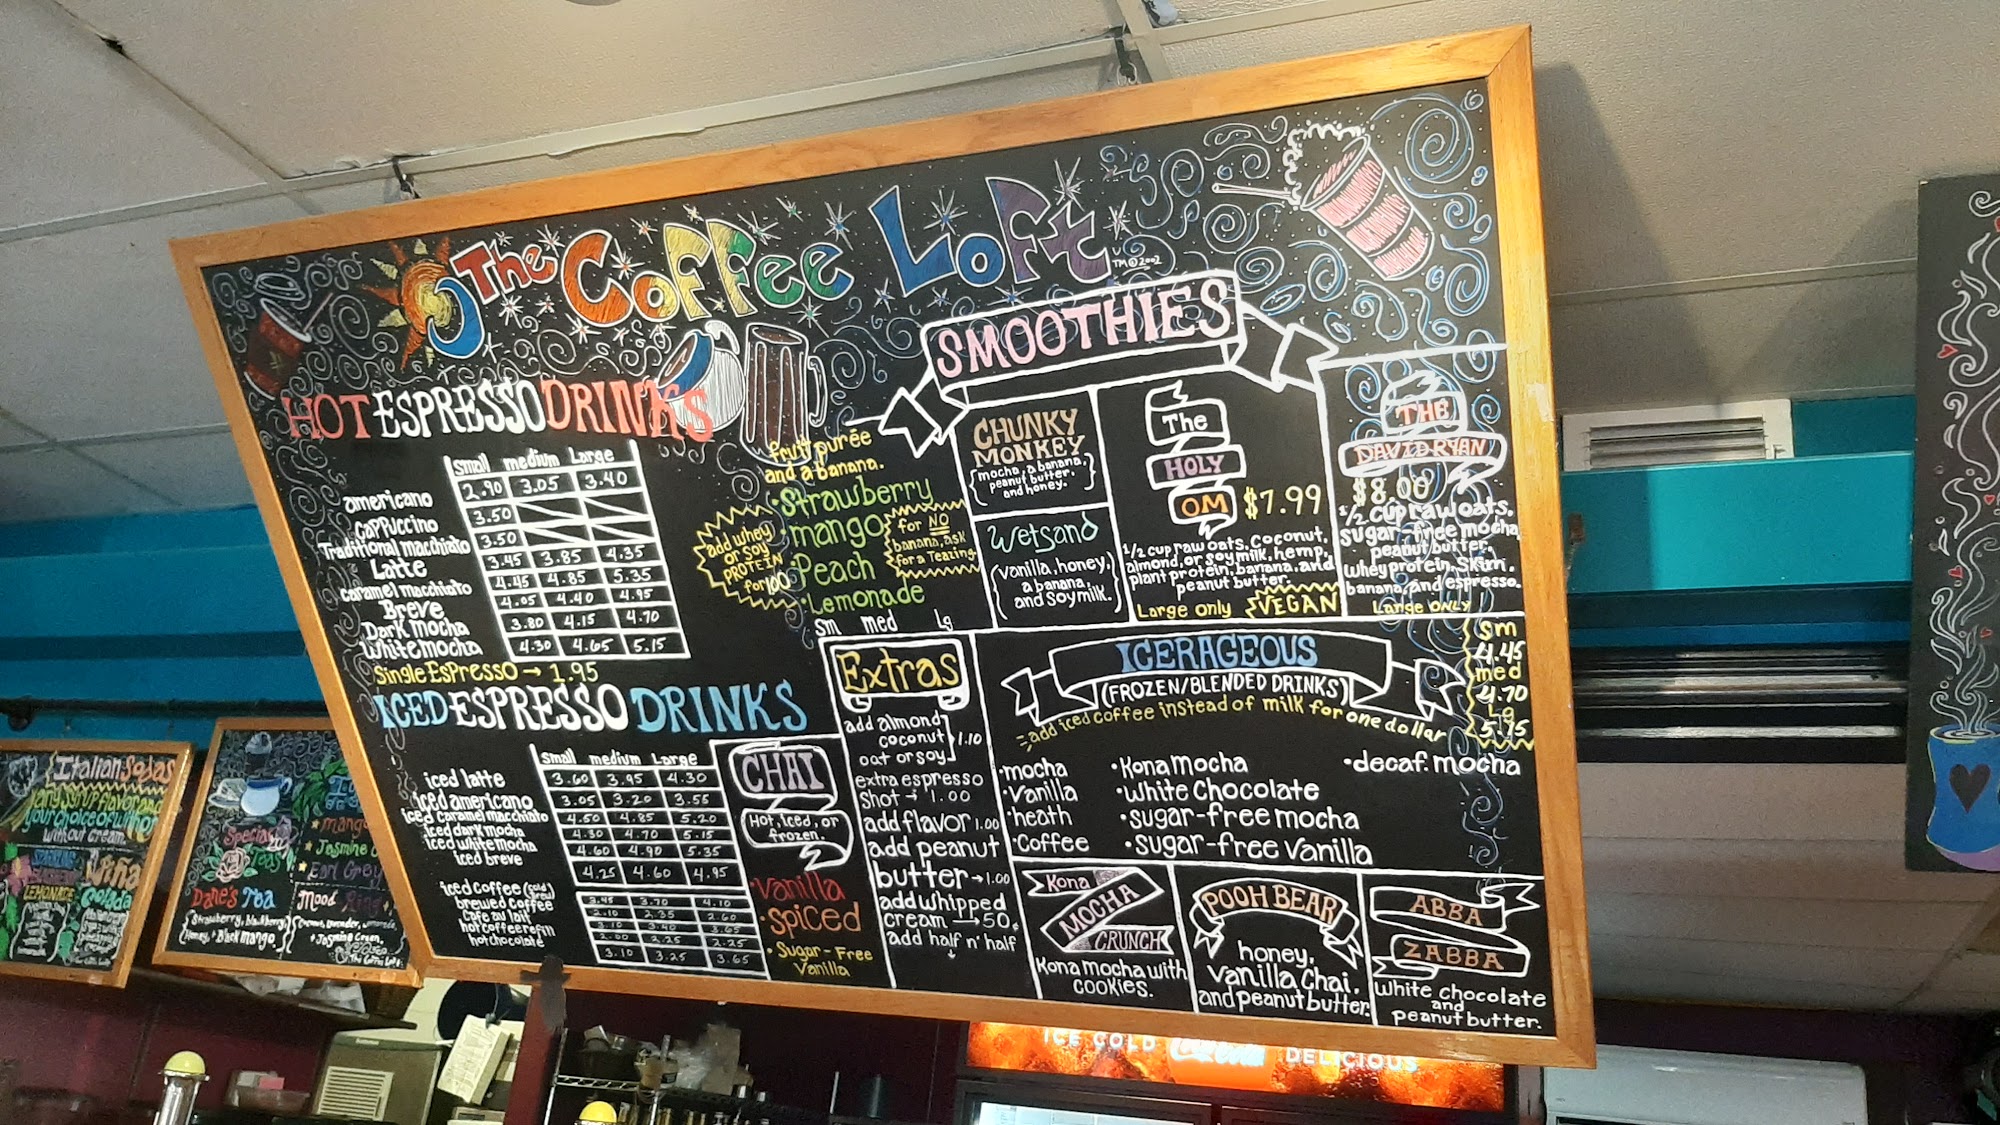 The Coffee Loft
TM © 2002
HOT ESPRESSO DRINKS
small medium Large
americano 2.90 3.05 3.40
cappuccino 3.50
Traditional macchiato 3.50
Latte 3.45 3.85 4.35
caramel macchiato 4.45 4.85 5.35
Breve 4.05 4.40 4.95
Dark mocha 3.80 4.15 4.70
White mocha 4.30 4.65 5.15
Single Espresso → 1.95
ICED ESPRESSO DRINKS
small medium Large
iced latte 3.60 3.95 4.30
iced americano 3.05 3.20 3.55
iced caramel macchiato 4.50 4.85 5.20
iced dark mocha 4.30 4.70 5.15
iced white mocha 4.60 4.90 5.35
iced breve 4.25 4.60 4.95
iced coffee (cold brew) 3.45 3.70 4.10
brewed coffee 2.10 2.35 2.60
cafe au lait 3.10 3.40 3.65
hot coffee refill 2.00 2.25 2.25
hot chocolate 3.10 3.25 3.65
CHAI
Hot, iced, or
frozen.
•Vanilla
•Spiced
•Sugar-Free
Vanilla
SMOOTHIES
fruit purée
and a banana.
•Strawberry
mango
•Peach
•Lemonade
sm med Lg
add whey
or soy
PROTEIN
for 100
for NO
banana, ask
for a Teazing
CHUNKY
MONKEY
{mocha, a banana,
peanut butter,
and honey.}
Wetsand
(vanilla, honey,
a banana,
and soymilk.)
The
HOLY
OM $7.99
1/2 cup raw oats, coconut,
almond, or soy milk, hemp,
plant protein, banana, and
peanut butter.
Large only VEGAN
THE
DAVID RYAN
$8.00
1/2 cup raw oats,
sugar-free mocha,
peanut butter,
whey protein, skim,
banana, and espresso.
Large ONLY
Extras
add almond
coconut
oat or soy] 1.10
extra espresso
shot → 1.00
add flavor 1.00
add peanut
butter → 1.00
add whipped
cream → 50¢
add half n' half
ICERAGEOUS
(FROZEN/BLENDED DRINKS)
add iced coffee instead of milk for one dollar
sm
4.45
med
4.70
Lg
5.95
•mocha
•Vanilla
•heath
•Coffee
•Kona Mocha
•White Chocolate
•sugar-free mocha
•sugar-free vanilla
•decaf. mocha
Kona
MOCHA
CRUNCH
Kona mocha with
cookies.
POOH BEAR
honey,
vanilla chai,
and peanut butter.
ABBA
ZABBA
White chocolate
and
peanut butter.
Italian Sodas
any syrup flavor and
your choice of with or
without cream.
LEMONADE
Piña
Colada
Special
Teas
Dane's Tea
{Strawberry, blackberry,
Honey, + Black mango.}
mango
Jasmine
Earl Grey
Mood Ring
+ Jasmine Green.
The Coffee Loft
ICE COLD Coca-Cola DELICIOUS